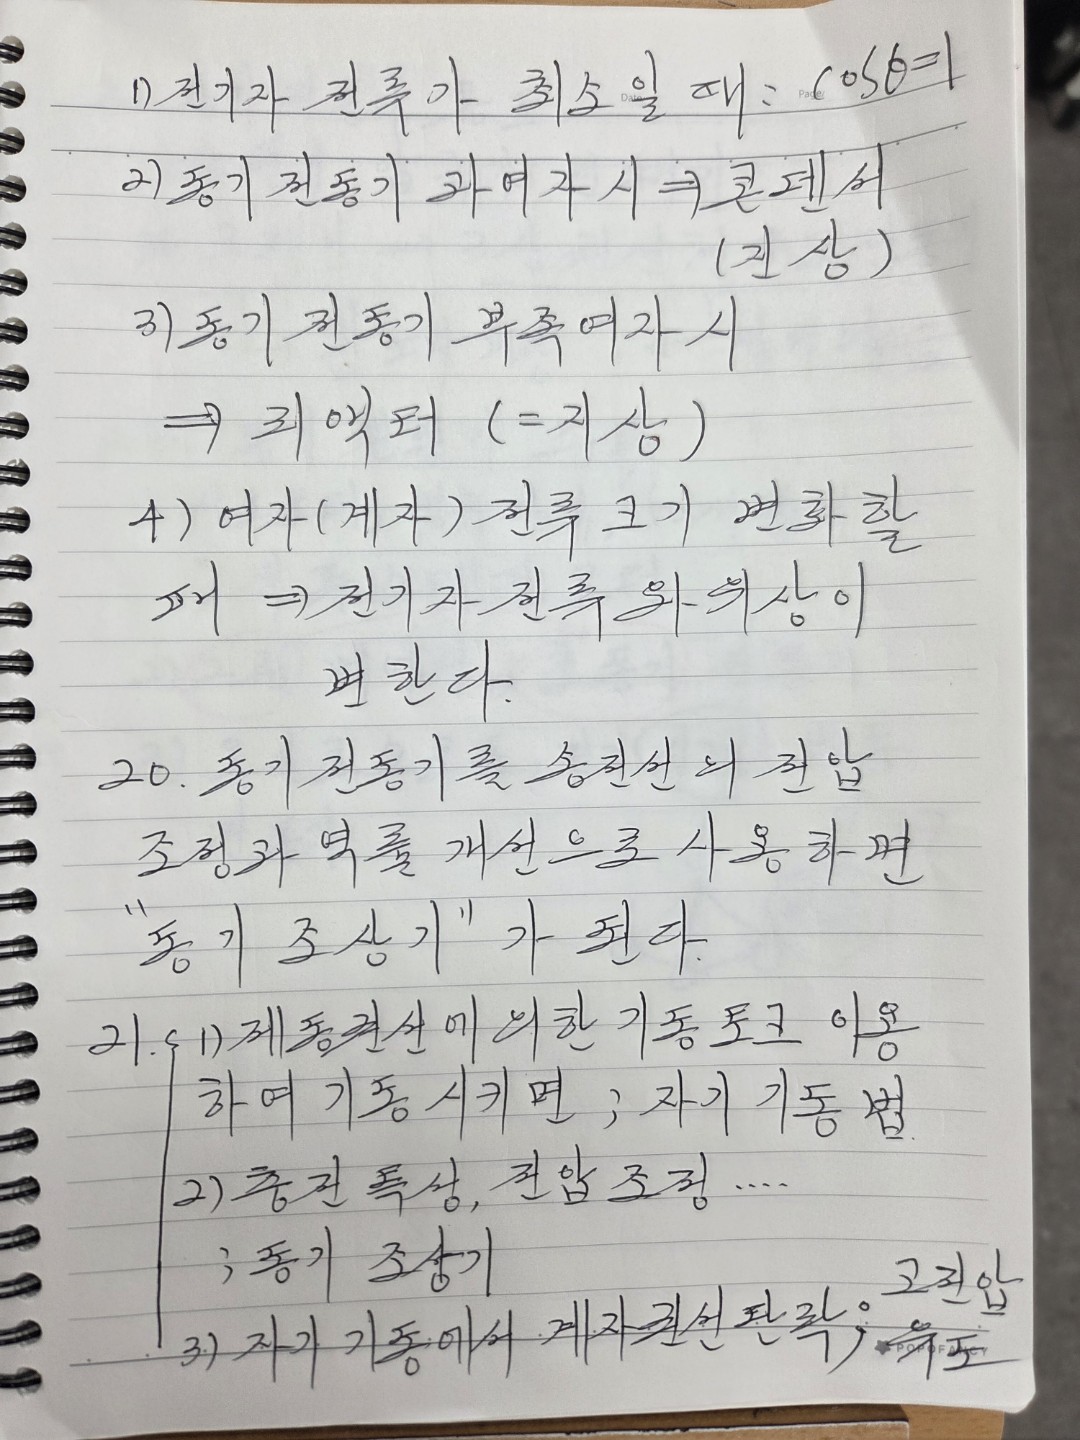 1) 전기자 전류가 최소일 때: cosθ=1
2) 동기 전동기 과여자 시 ⇒ 콘덴서
(진상)
3) 동기 전동기 부족여자 시
⇒ 리액터 (=지상)
4) 여자(계자) 전류 크기 변화할
때 ⇒ 전기자 전류와 위상이
변한다.
20. 동기 전동기를 송전선의 전압
조정과 역률 개선으로 사용하면
"동기 조상기"가 된다.
21. 1) 제동권선에 의한 기동토크 이용
하여 기동시키면 ; 자기 기동법
2) 충전 특성, 전압 조정 ....
; 동기 조상기
3) 자기 기동에서 계자권선 단락; 고전압
유도
Date
Page
POPOFANCY